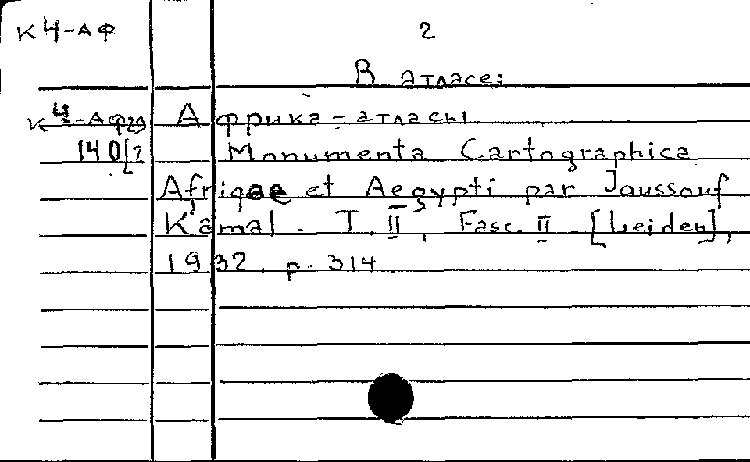 К4-АФ
2
В атласе:
К4-АФ Африка - атласы
140 Monumenta Cartographica
Africae et Aegypti par Joussouf
Kamal. T. II, Fasc. II - [Leiden],
1932. p. 314